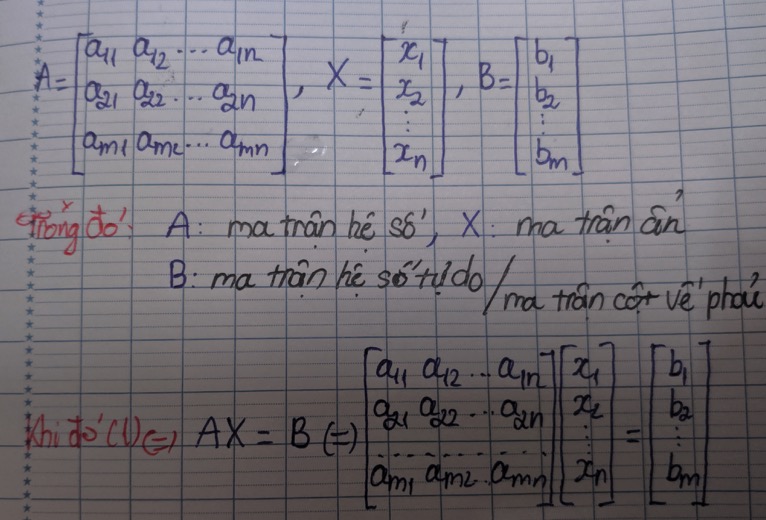 A = [a₁₁ a₁₂ ... a₁ₙ; a₂₁ a₂₂ ... a₂ₙ; aₘ₁ aₘ₂ ... aₘₙ], X = [x₁; x₂; ⋮; xₙ], B = [b₁; b₂; ⋮; bₘ]
Trong đó: A: ma trận hệ số, X: ma trận ẩn
B: ma trận hệ số tự do / ma trận cột vế phải
Khi đó (1) ⇔ AX = B ⇔ [a₁₁ a₁₂ ... a₁ₙ; a₂₁ a₂₂ ... a₂ₙ; ..........; aₘ₁ aₘ₂ ... aₘₙ] [x₁; x₂; ⋮; xₙ] = [b₁; b₂; ⋮; bₘ]